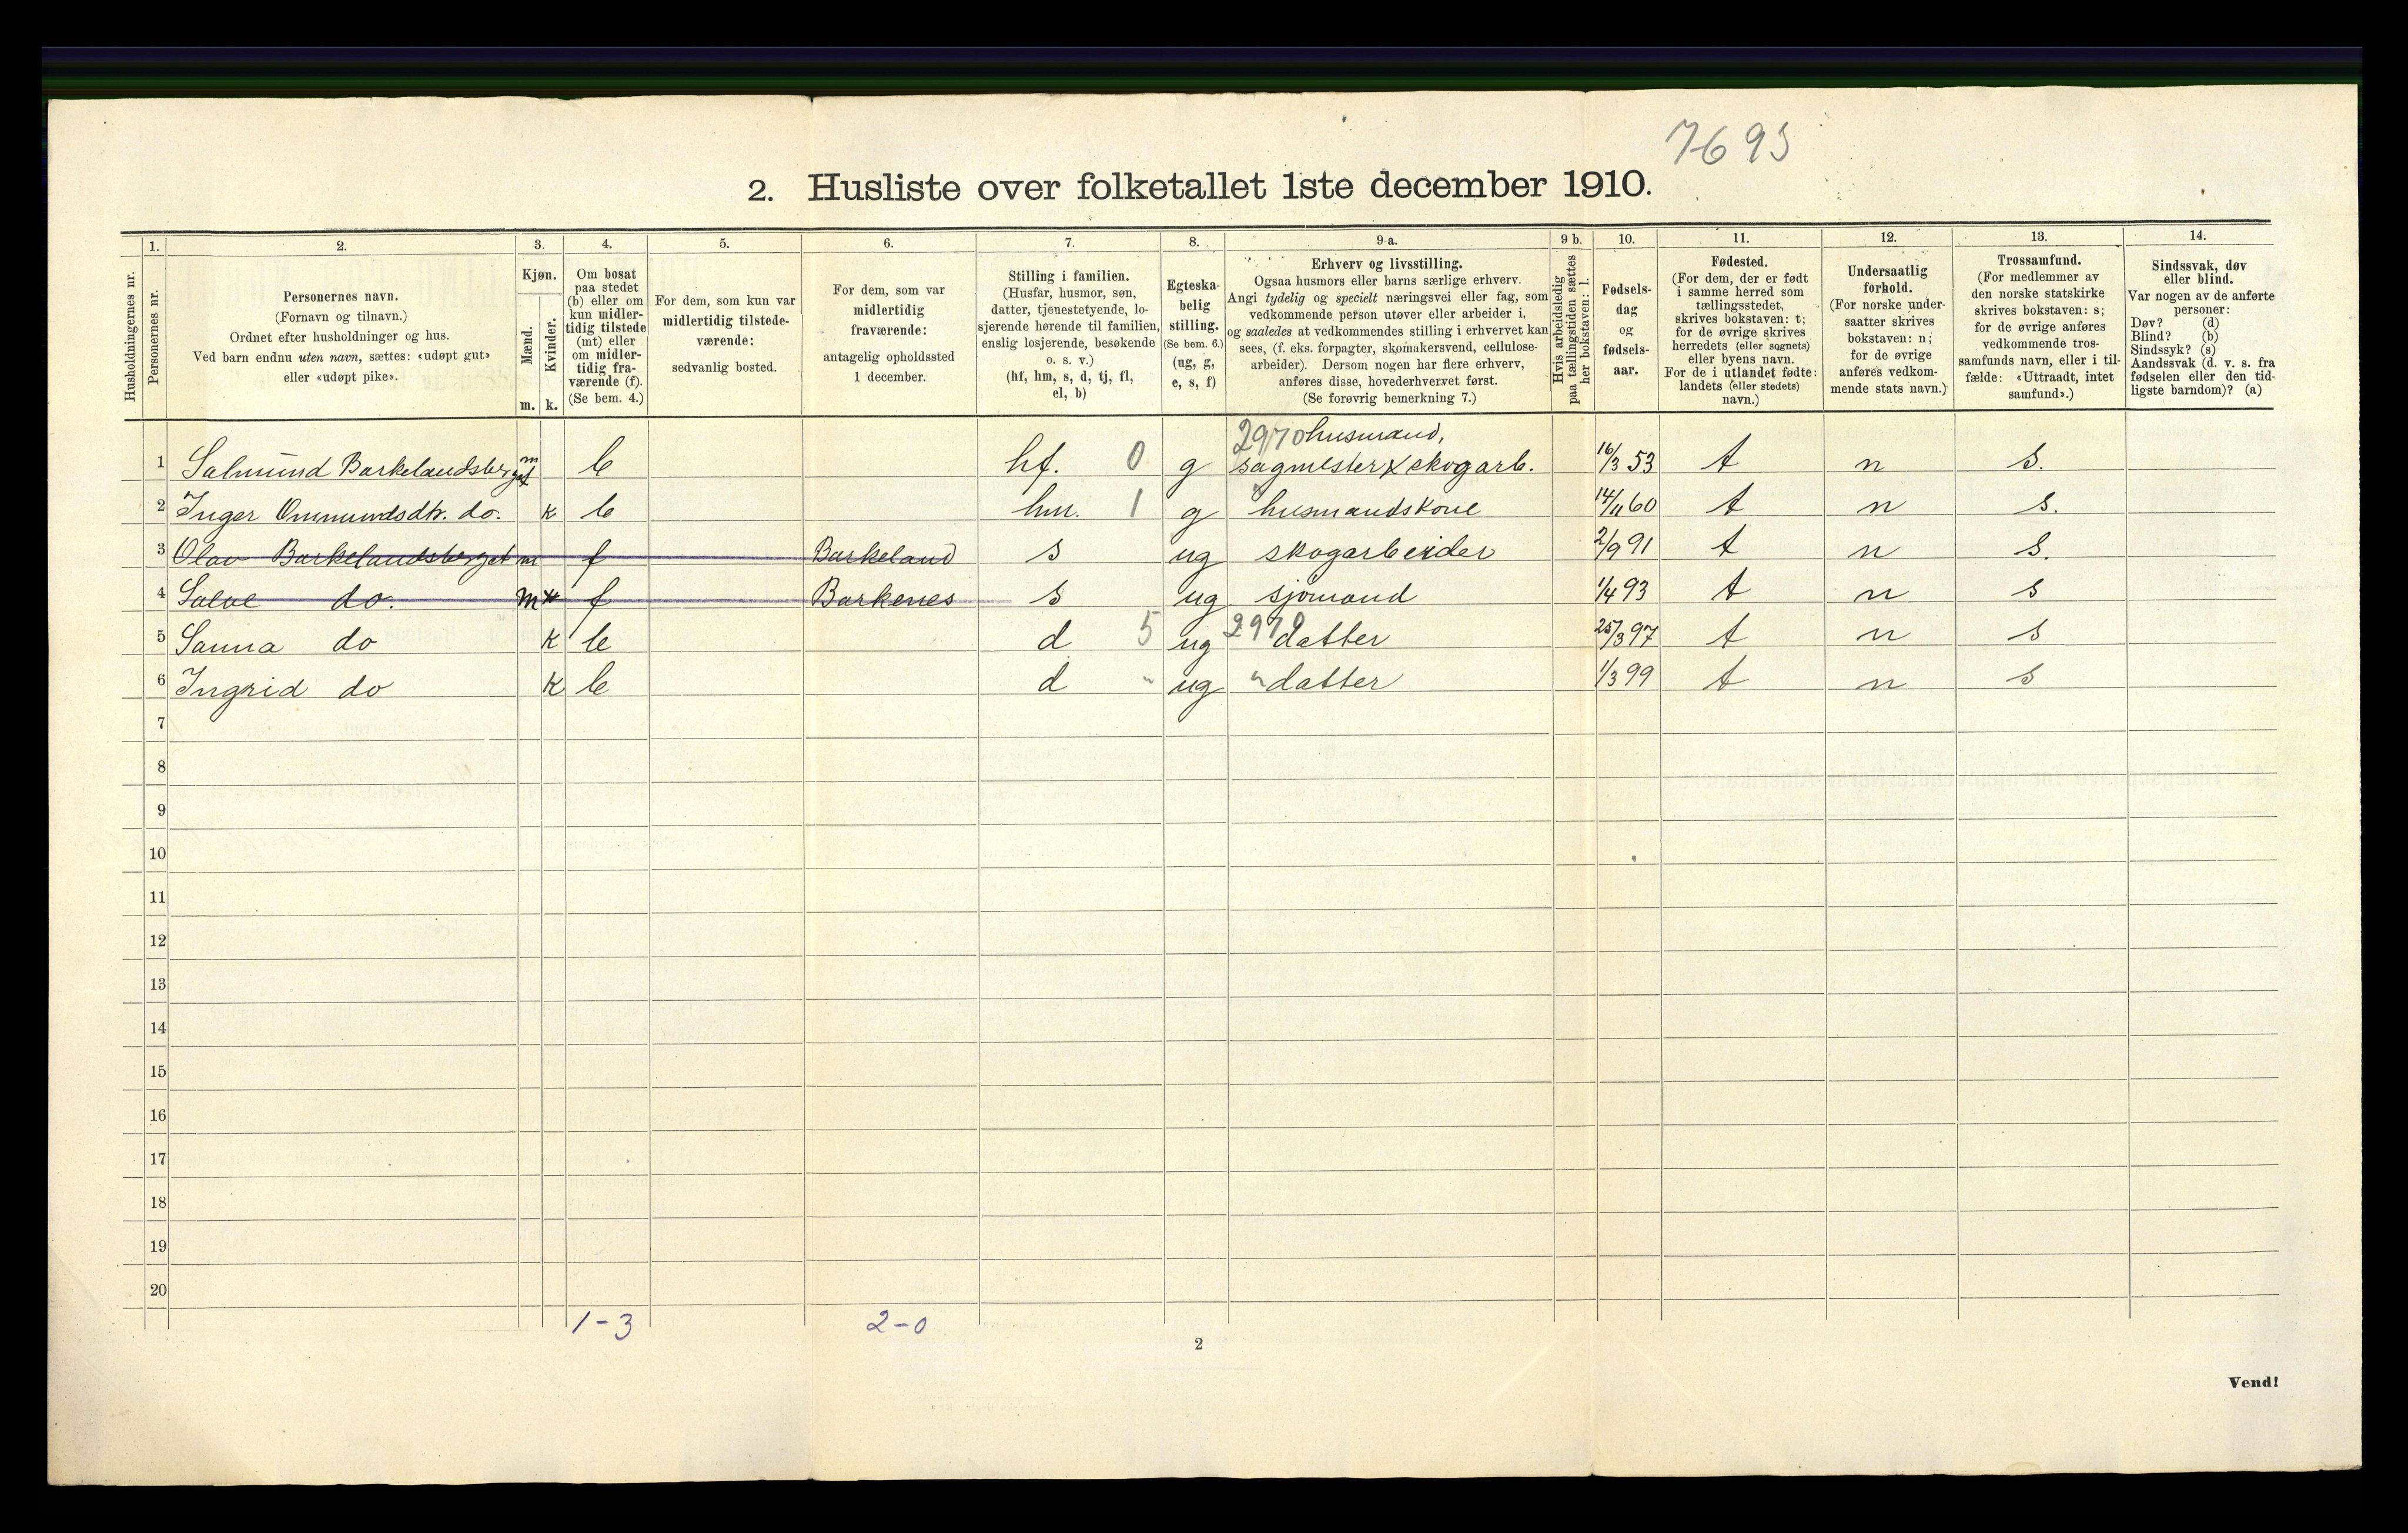 7693
2. Husliste over folketallet 1ste december 1910.
Husholdningernes nr.
1.
Personernes nr.
2.
Personernes navn.
(Fornavn og tilnavn.)
Ordnet efter husholdninger og hus.
Ved barn endnu uten navn, sættes: «udøpt gut»
eller «udøpt pike».
3.
Kjøn.
Mænd.
Kvinder.
m. k.
4.
Om bosat
paa stedet
(b) eller om
kun midler-
tidig tilstede
(mt) eller
om midler-
tidig fra-
værende (f).
(Se bem. 4.)
5.
For dem, som kun var
midlertidig tilstede-
værende:
sedvanlig bosted.
6.
For dem, som var
midlertidig
fraværende:
antagelig opholdssted
1 december.
7.
Stilling i familien.
(Husfar, husmor, søn,
datter, tjenestetyende, lo-
sjerende hørende til familien,
enslig losjerende, besøkende
o. s. v.)
(hf, hm, s, d, tj, fl,
el, b)
8.
Egteska-
belig
stilling.
(Se bem. 6.)
(ug, g,
e, s, f)
9 a.
Erhverv og livsstilling.
Ogsaa husmors eller barns særlige erhverv.
Angi tydelig og specielt næringsvei eller fag, som
vedkommende person utøver eller arbeider i,
og saaledes at vedkommendes stilling i erhvervet kan
sees, (f. eks. forpagter, skomakersvend, cellulose-
arbeider). Dersom nogen har flere erhverv,
anføres disse, hovederhvervet først.
(Se forøvrig bemerkning 7.)
9 b.
Hvis arbeidsledig
paa tællingstiden sættes
her bokstaven: l.
10.
Fødsels-
dag
og
fødsels-
aar.
11.
Fødested.
(For dem, der er født
i samme herred som
tællingsstedet,
skrives bokstaven: t;
for de øvrige skrives
herredets (eller sognets)
eller byens navn.
For de i utlandet fødte:
landets (eller stedets)
navn.)
12.
Undersaatlig
forhold.
(For norske under-
saatter skrives
bokstaven: n;
for de øvrige
anføres vedkom-
mende stats navn.)
13.
Trossamfund.
(For medlemmer av
den norske statskirke
skrives bokstaven: s;
for de øvrige anføres
vedkommende tros-
samfunds navn, eller i til-
fælde: «Uttraadt, intet
samfund».)
14.
Sindssvak, døv
eller blind.
Var nogen av de anførte
personer:
Døv? (d)
Blind? (b)
Sindssyk? (s)
Aandssvak (d. v. s. fra
fødselen eller den tid-
ligste barndom)? (a)
2970 husmand,
1 Salmund Barkelandsberget m b hf. 0 g sagmester & skogarb. 16/3 53 t n s.
2 Inger Ommundsdtr. do. k b hm. 1 g " husmandskone 14/11 60 t n s.
3 Olav Barkelandsberget m f Barkeland s ug skogarbeider 2/9 91 t n s.
4 Salve do. m f Barkenes s ug sjømand 1/4 93 t n s
5 Sanna do k b d 5 ug 2970 datter 25/3 97 t n s
6 Ingrid do k b d " ug " datter 1/3 99 t n s
7
8
9
10
11
12
13
14
15
16
17
18
19
20
1-3 2-0
2
Vend!